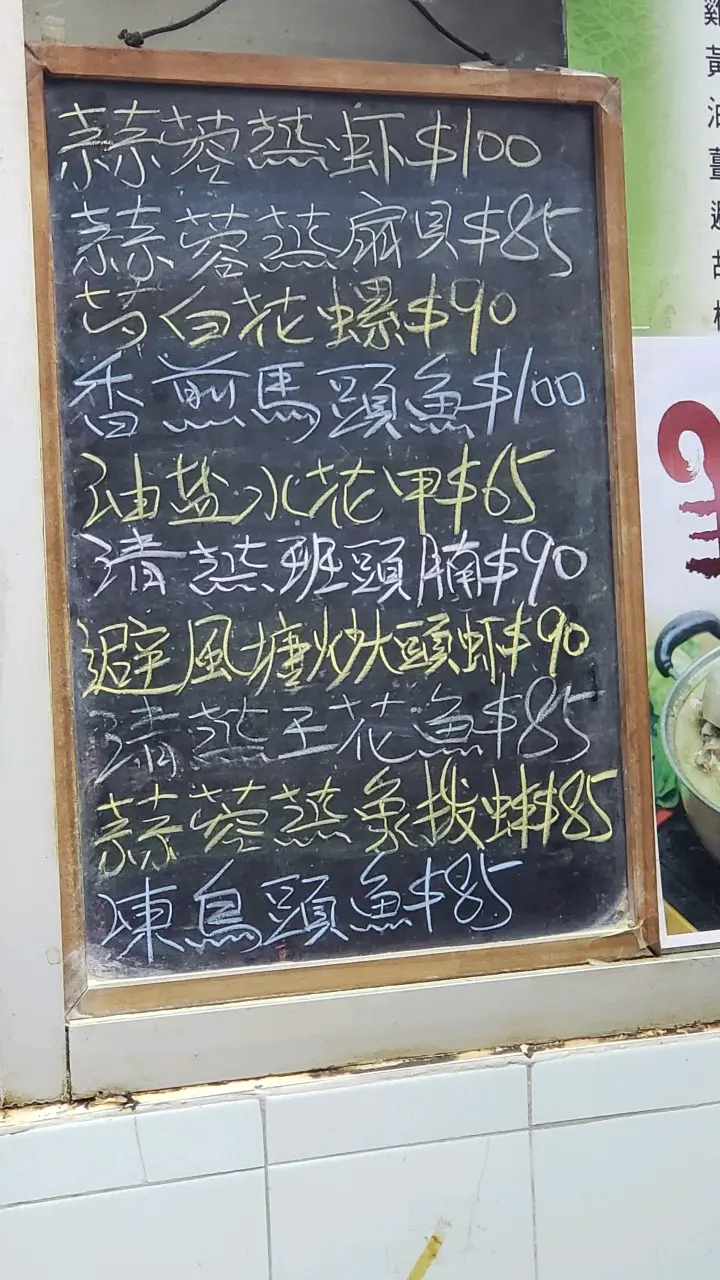 蒜蓉蒸虾$100
蒜蓉蒸扇贝$85
白花螺$90
香煎馬頭魚$100
油盐水花甲$65
清蒸班頭腩$90
避風塘炒大頭虾$90
清蒸王花魚$85
蒜蓉蒸象拔蚌$85
凍烏頭魚$85
雞
黃
油
薑
避